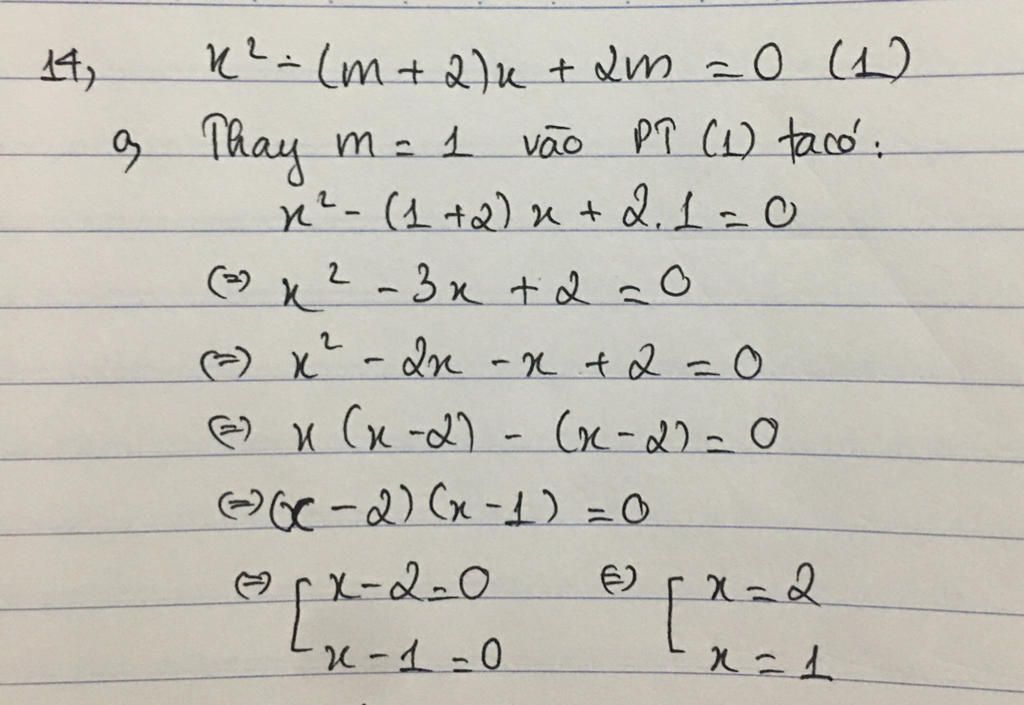 14, x² - (m + 2)x + 2m = 0 (1)
a, Thay m = 1 vào PT (1) ta có:
x² - (1 + 2) x + 2.1 = 0
(=) x² - 3x + 2 = 0
(=) x² - 2x - x + 2 = 0
(=) x (x - 2) - (x - 2) = 0
(=) (x - 2) (x - 1) = 0
(=) [ x - 2 = 0 (=) [ x = 2
x - 1 = 0 x = 1